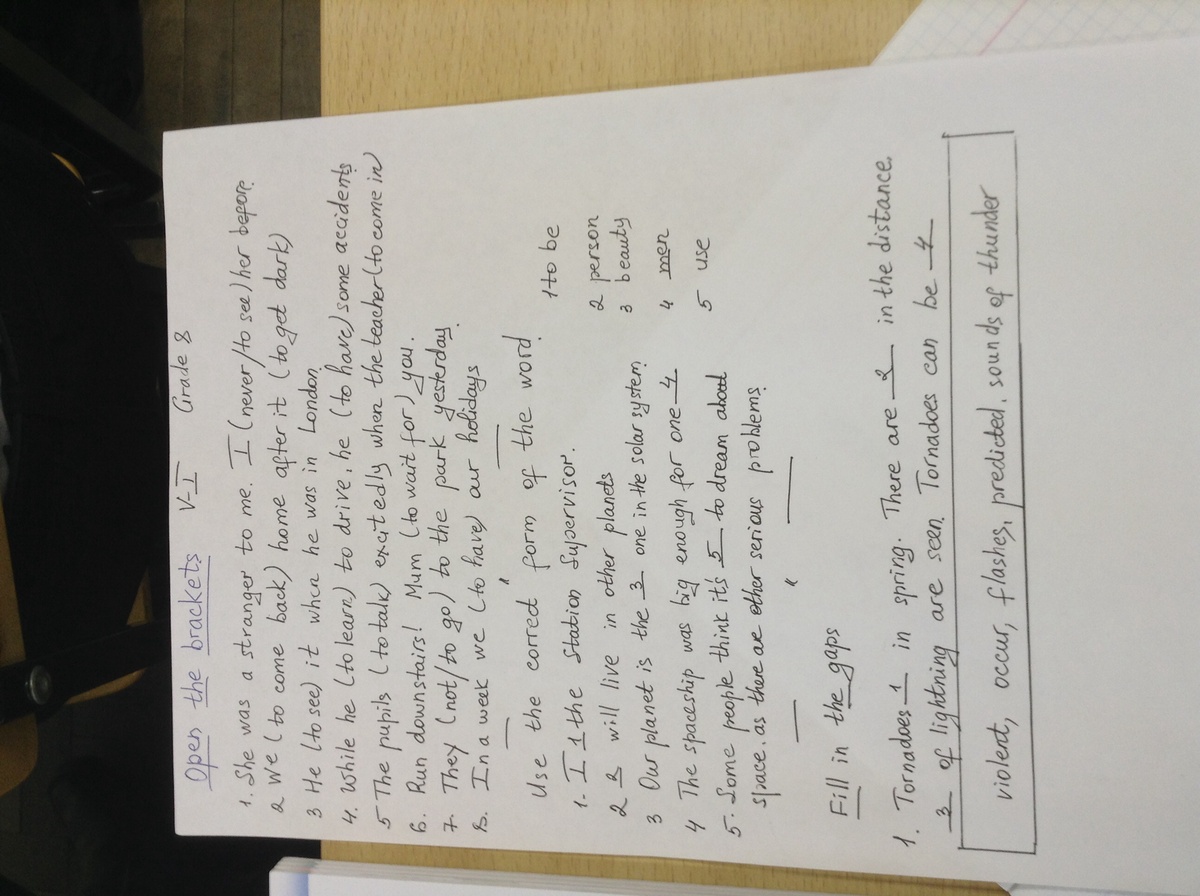 Open the brackets V-I Grade 8
1. She was a stranger to me. I (never/to see) her before.
2 We (to come back) home after it (to get dark)
3 He (to see) it when he was in London
4. While he (to learn) to drive, he (to have) some accidents
5 The pupils (to talk) excitedly when the teacher (to come in)
6. Run downstairs! Mum (to wait for) you.
7. They (not/to go) to the park yesterday.
8. In a week we (to have) our holidays
— " —
Use the correct form of the word.
1. I 1 the Station Supervisor. 1 to be
2 2 will live in other planets 2 person
3 Our planet is the 3 one in the solar system. 3 beauty
4 The spaceship was big enough for one 4 4 men
5. Some people think it's 5 to dream about 5 use
space, as there are other serious problems.
— " —
Fill in the gaps
1. Tornadoes 1 in spring. There are 2 in the distance.
3 of lightning are seen. Tornadoes can be 4
violent, occur, flashes, predicted, sounds of thunder